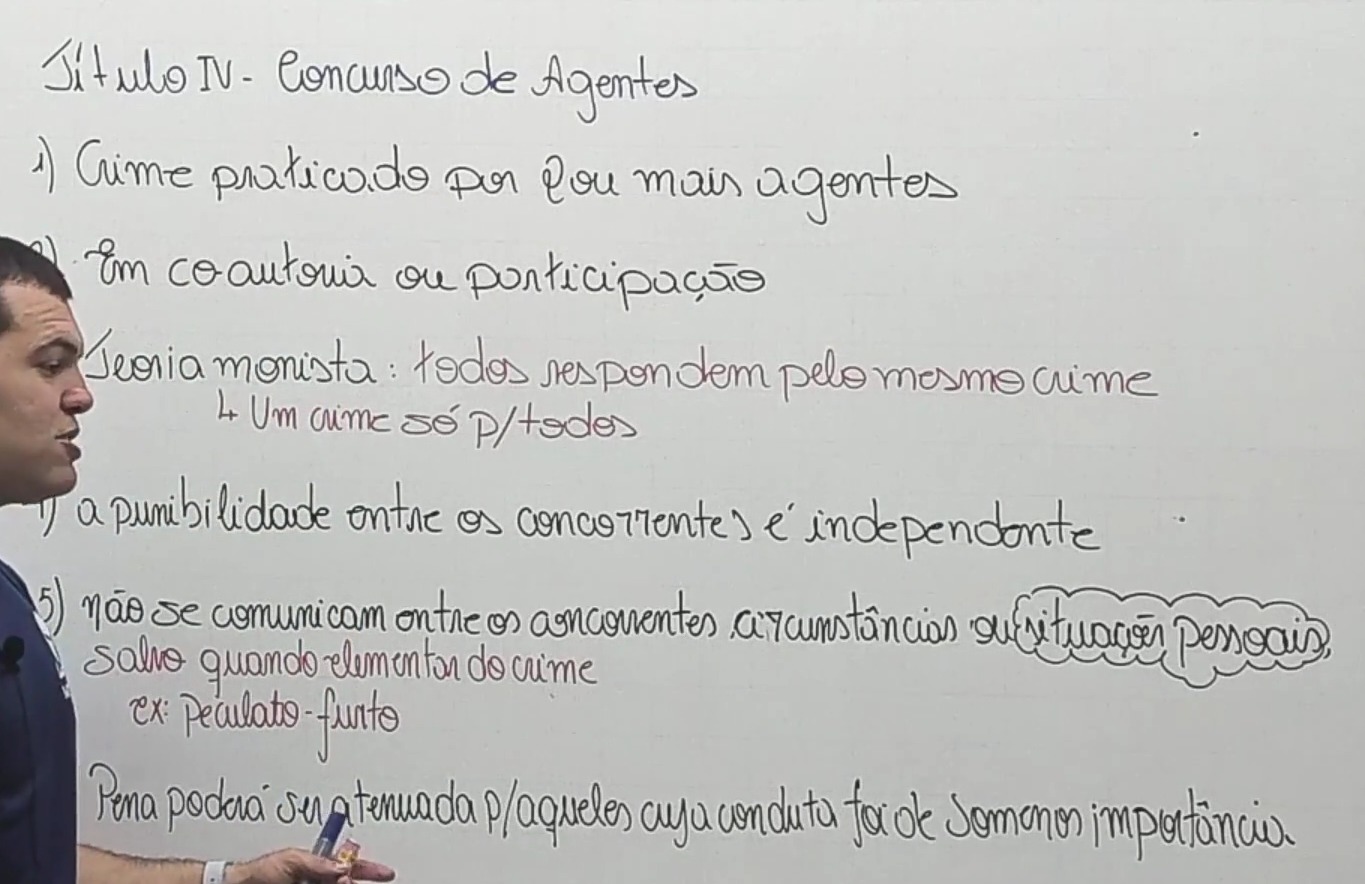 Título IV - Concurso de Agentes
1) Crime praticado por 2 ou mais agentes
2) Em coautoria ou participação
Teoria monista: todos respondem pelo mesmo crime
↳ Um crime só p/ todos
4) a punibilidade entre os concorrentes é independente
5) não se comunicam entre os concorrentes circunstâncias ou situações pessoais,
salvo quando elementar do crime
ex: Peculato-furto
Pena poderá ser atenuada p/ aqueles cuja conduta foi de somenos importância.